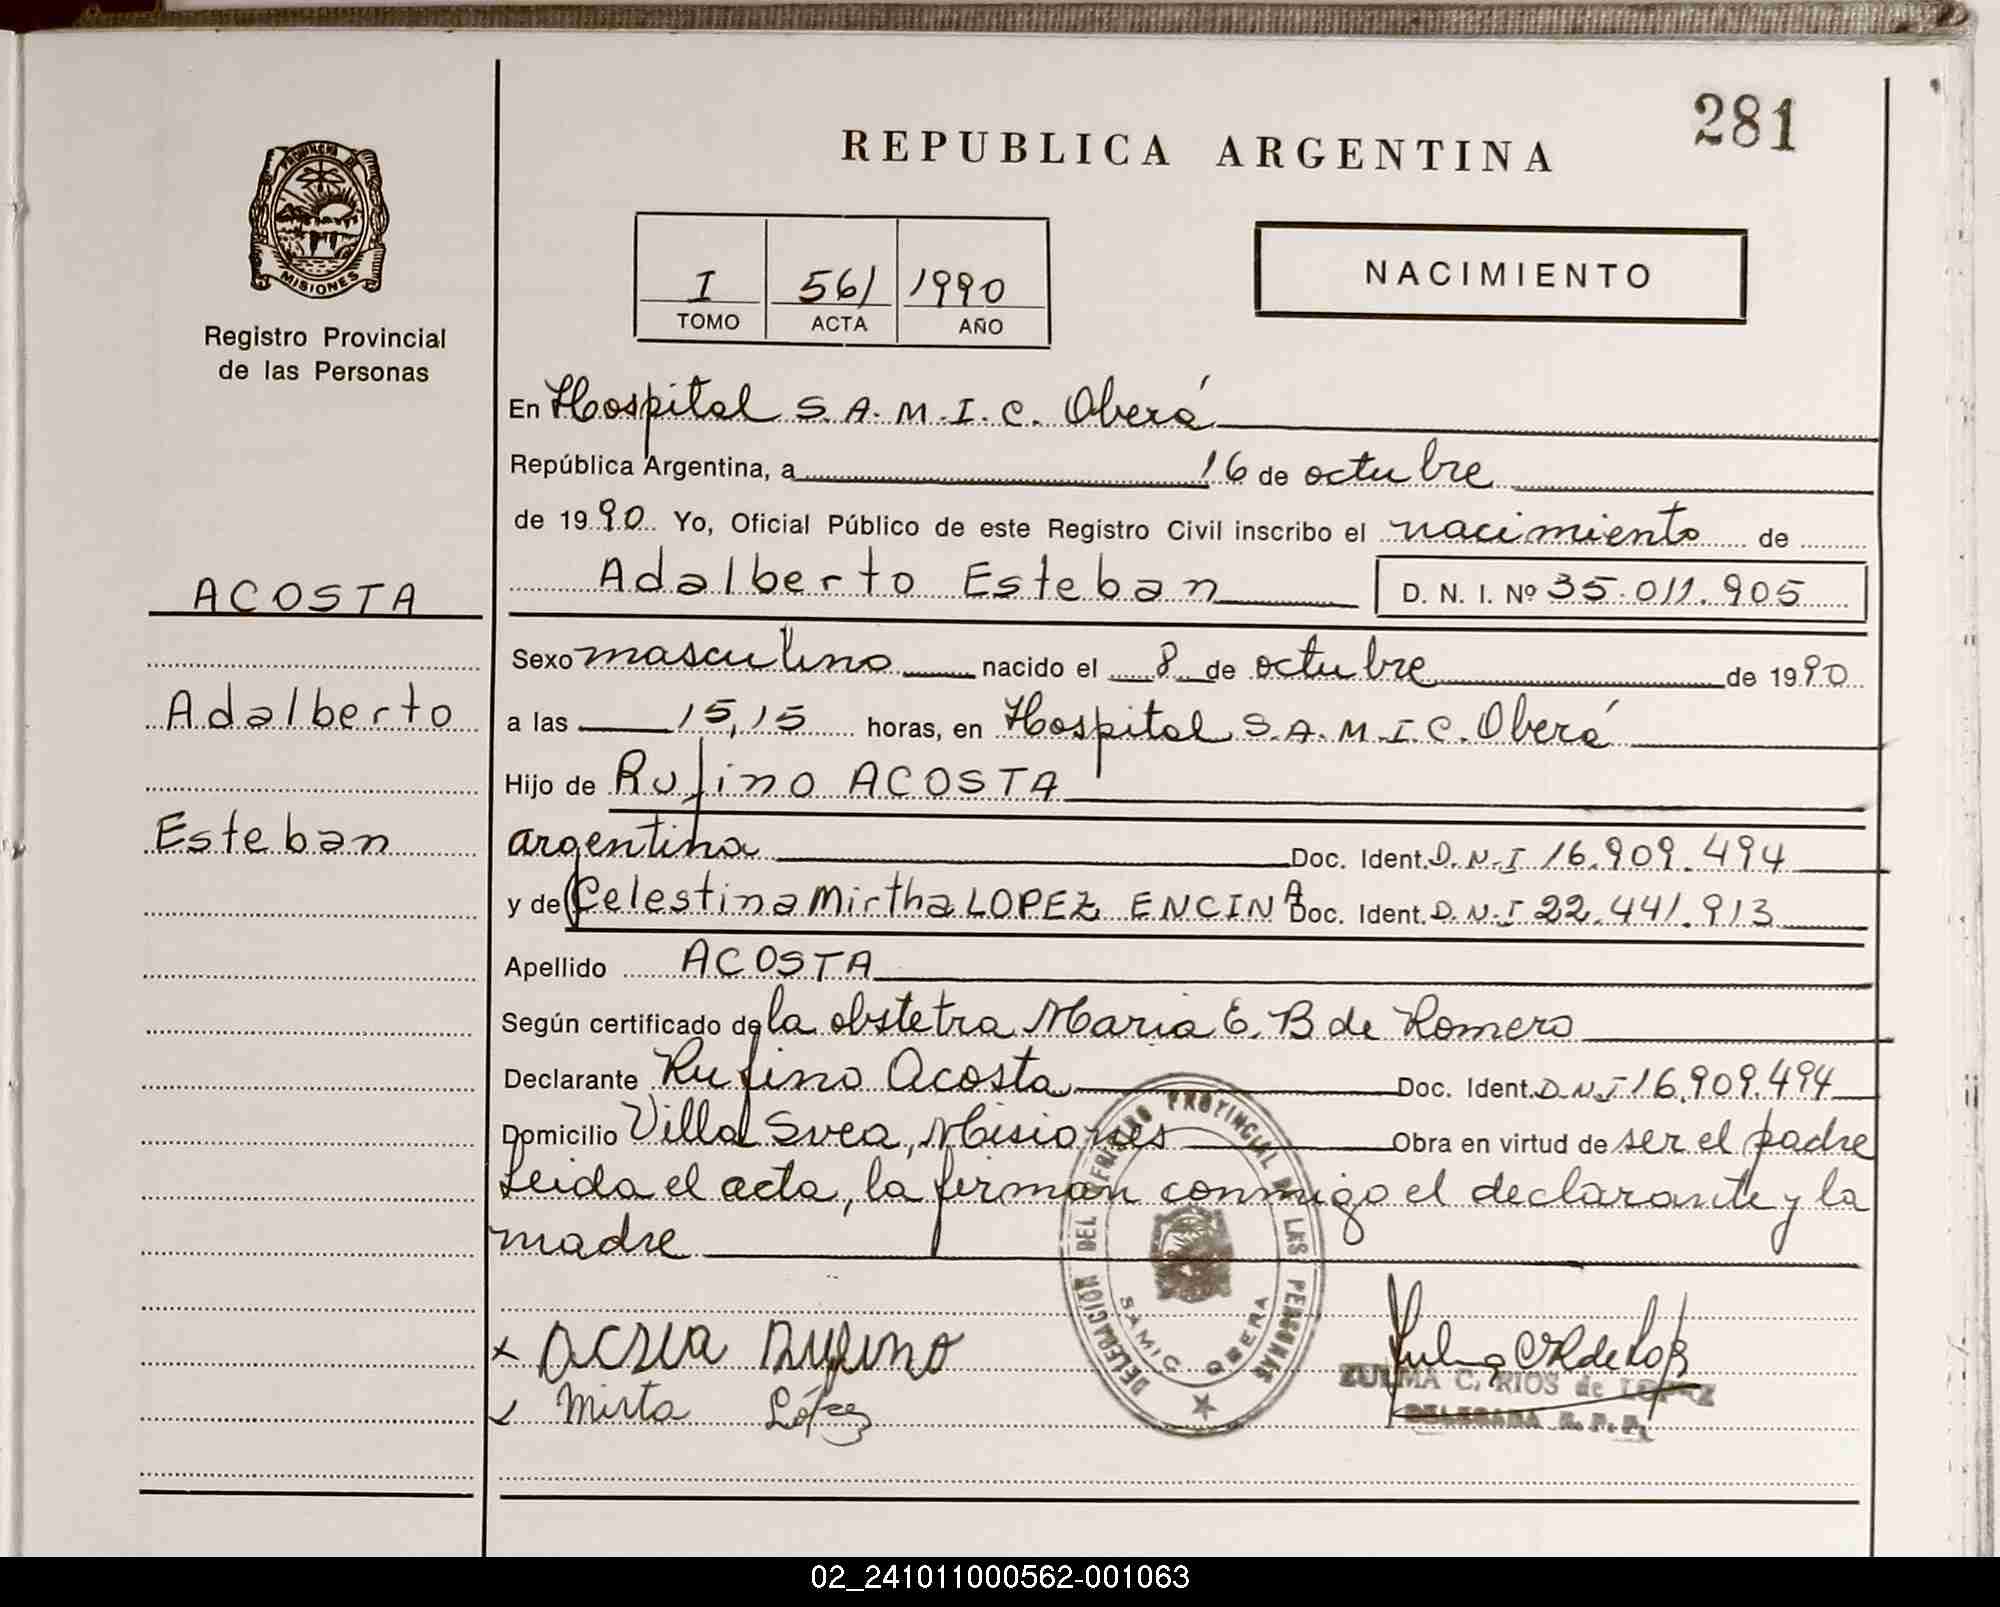 281
REPUBLICA ARGENTINA
PROVINCIA DE
MISIONES
Registro Provincial
de las Personas
I 561 1990
TOMO ACTA AÑO
NACIMIENTO
En Hospital S.A.M.I.C. Oberá
República Argentina, a 16 de octubre
de 1990 Yo, Oficial Público de este Registro Civil inscribo el nacimiento de
ACOSTA
Adalberto Esteban D. N. I. Nº 35.011.905
Sexo masculino nacido el 8 de octubre de 1990
Adalberto
a las 15,15 horas, en Hospital S.A.M.I.C. Oberá
Hijo de Rufino ACOSTA
Esteban
argentina Doc. Ident. D.N.I 16.909.494
y de Celestina Mirtha LOPEZ ENCINA Doc. Ident. D.N.I 22.441.913
Apellido ACOSTA
Según certificado de la obstetra Maria E. B de Romero
Declarante Rufino Acosta Doc. Ident. D.N.I 16.909.494
Domicilio Villa Svea, Misiones Obra en virtud de ser el padre
Leida el acta, la firman conmigo el declarante y la
madre
DELEGACION DEL REGISTRO PROVINCIAL DE LAS PERSONAS
SAMIC OBERA
x Rufino
Mirta López
ZULMA C. RIOS de LOPEZ
DELEGADA R. P. P.
02_241011000562-001063